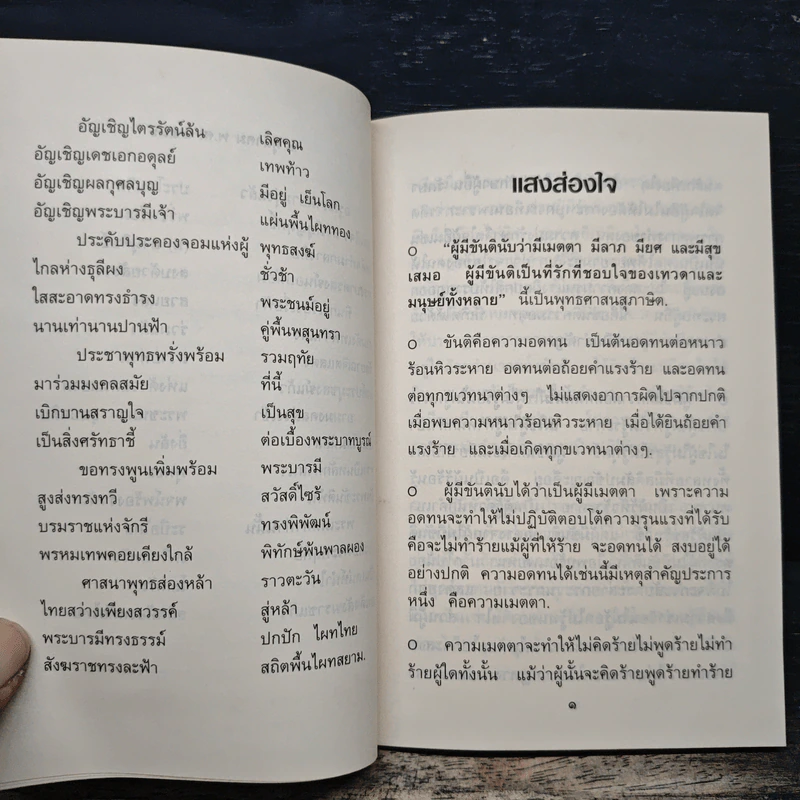 อัญเชิญไตรรัตน์ล้น เลิศคุณ
อัญเชิญเดชเอกอดุลย์ เทพท้าว
อัญเชิญผลกุศลบุญ มีอยู่ เย็นโลก
อัญเชิญพระบารมีเจ้า แผ่นพื้นไผททอง
ประคับประคองจอมแห่งผู้ พุทธสงฆ์
ไกลห่างธุลีผง ชั่วช้า
ใสสะอาดทรงธำรง พระชนม์อยู่
นานเท่านานปานฟ้า คู่พื้นพสุนทรา
ประชาพุทธพรั่งพร้อม รวมฤทัย
มาร่วมมงคลสมัย ที่นี้
เบิกบานสราญใจ เป็นสุข
เป็นสิ่งศรัทธาชี้ ต่อเบื้องพระบาทบูรณ์
ขอทรงพูนเพิ่มพร้อม พระบารมี
สูงส่งทรงทวี สวัสดิ์ไซร้
บรมราชแห่งจักรี ทรงพิพัฒน์
พรหมเทพคอยเคียงใกล้ พิทักษ์พ้นพาลผอง
ศาสนาพุทธส่องหล้า ราวตะวัน
ไทยสว่างเพียงสวรรค์ สู่หล้า
พระบารมีทรงธรรม์ ปกปัก ไผทไทย
สังฆราชทรงละฟ้า สถิตพื้นไผทสยาม.
แสงส่องใจ
๐ “ผู้มีขันตินับว่ามีเมตตา มีลาภ มียศ และมีสุข
เสมอ ผู้มีขันติเป็นที่รักที่ชอบใจของเทวดาและ
มนุษย์ทั้งหลาย” นี้เป็นพุทธศาสนสุภาษิต.
๐ ขันติคือความอดทน เป็นต้นอดทนต่อหนาว
ร้อนหิวระหาย อดทนต่อถ้อยคำแรงร้าย และอดทน
ต่อทุกขเวทนาต่างๆ ไม่แสดงอาการผิดไปจากปกติ
เมื่อพบความหนาวร้อนหิวระหาย เมื่อได้ยินถ้อยคำ
แรงร้าย และเมื่อเกิดทุกขเวทนาต่างๆ.
๐ ผู้มีขันตินับได้ว่าเป็นผู้มีเมตตา เพราะความ
อดทนจะทำให้ไม่ปฏิบัติตอบโต้ความรุนแรงที่ได้รับ
คือจะไม่ทำร้ายแม้ผู้ที่ให้ร้าย จะอดทนได้ สงบอยู่ได้
อย่างปกติ ความอดทนได้เช่นนี้มีเหตุสำคัญประการ
หนึ่ง คือความเมตตา.
๐ ความเมตตาจะทำให้ไม่คิดร้ายไม่พูดร้ายไม่ทำ
ร้ายผู้ใดทั้งนั้น แม้ว่าผู้นั้นจะคิดร้ายพูดร้ายทำร้าย
๑